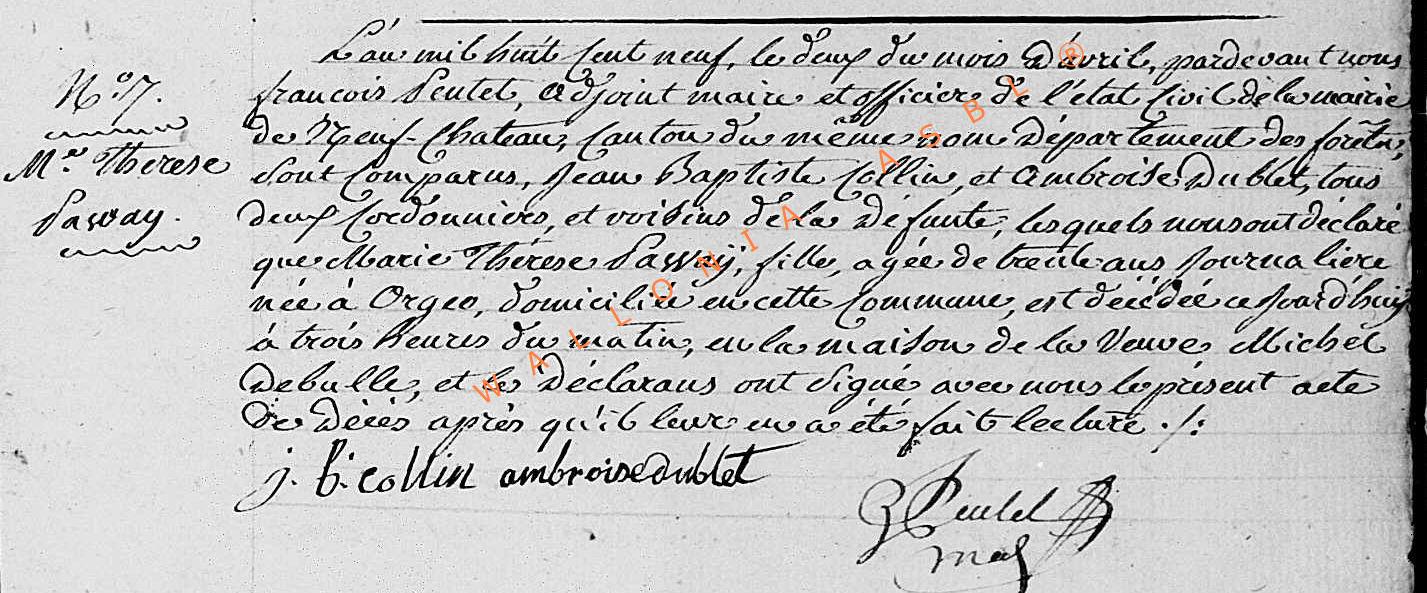 N.o 7.
M.e Thérese
Paway.
L'an mil huit cent neuf, le deux du mois d'avril, pardevant nous
françois Pentet, adjoint maire et officier de l'état Civil de la mairie
de Neuf-Chateau, Canton du même nom Département des forêts,
sont Comparus, Jean Baptiste Collin, et Ambroise Dublet, tous
deux Cordonniers, et voisins de la Défunte, lesquels nous ont déclaré
que Marie Thérese Pawaÿ, fille, agée de trente ans Journaliere
née à Orgeo, domiciliée en cette Commune, est décédée ce Jourd'huy
à trois heures du matin, en la maison de la Veuve Michel
Debulle, et les Déclarans ont signé avec nous le présent acte
De Décès après qu'il leur en a été fait lecture ./:
j. b. collin ambroise dublet
WALLONIA ASBL ®